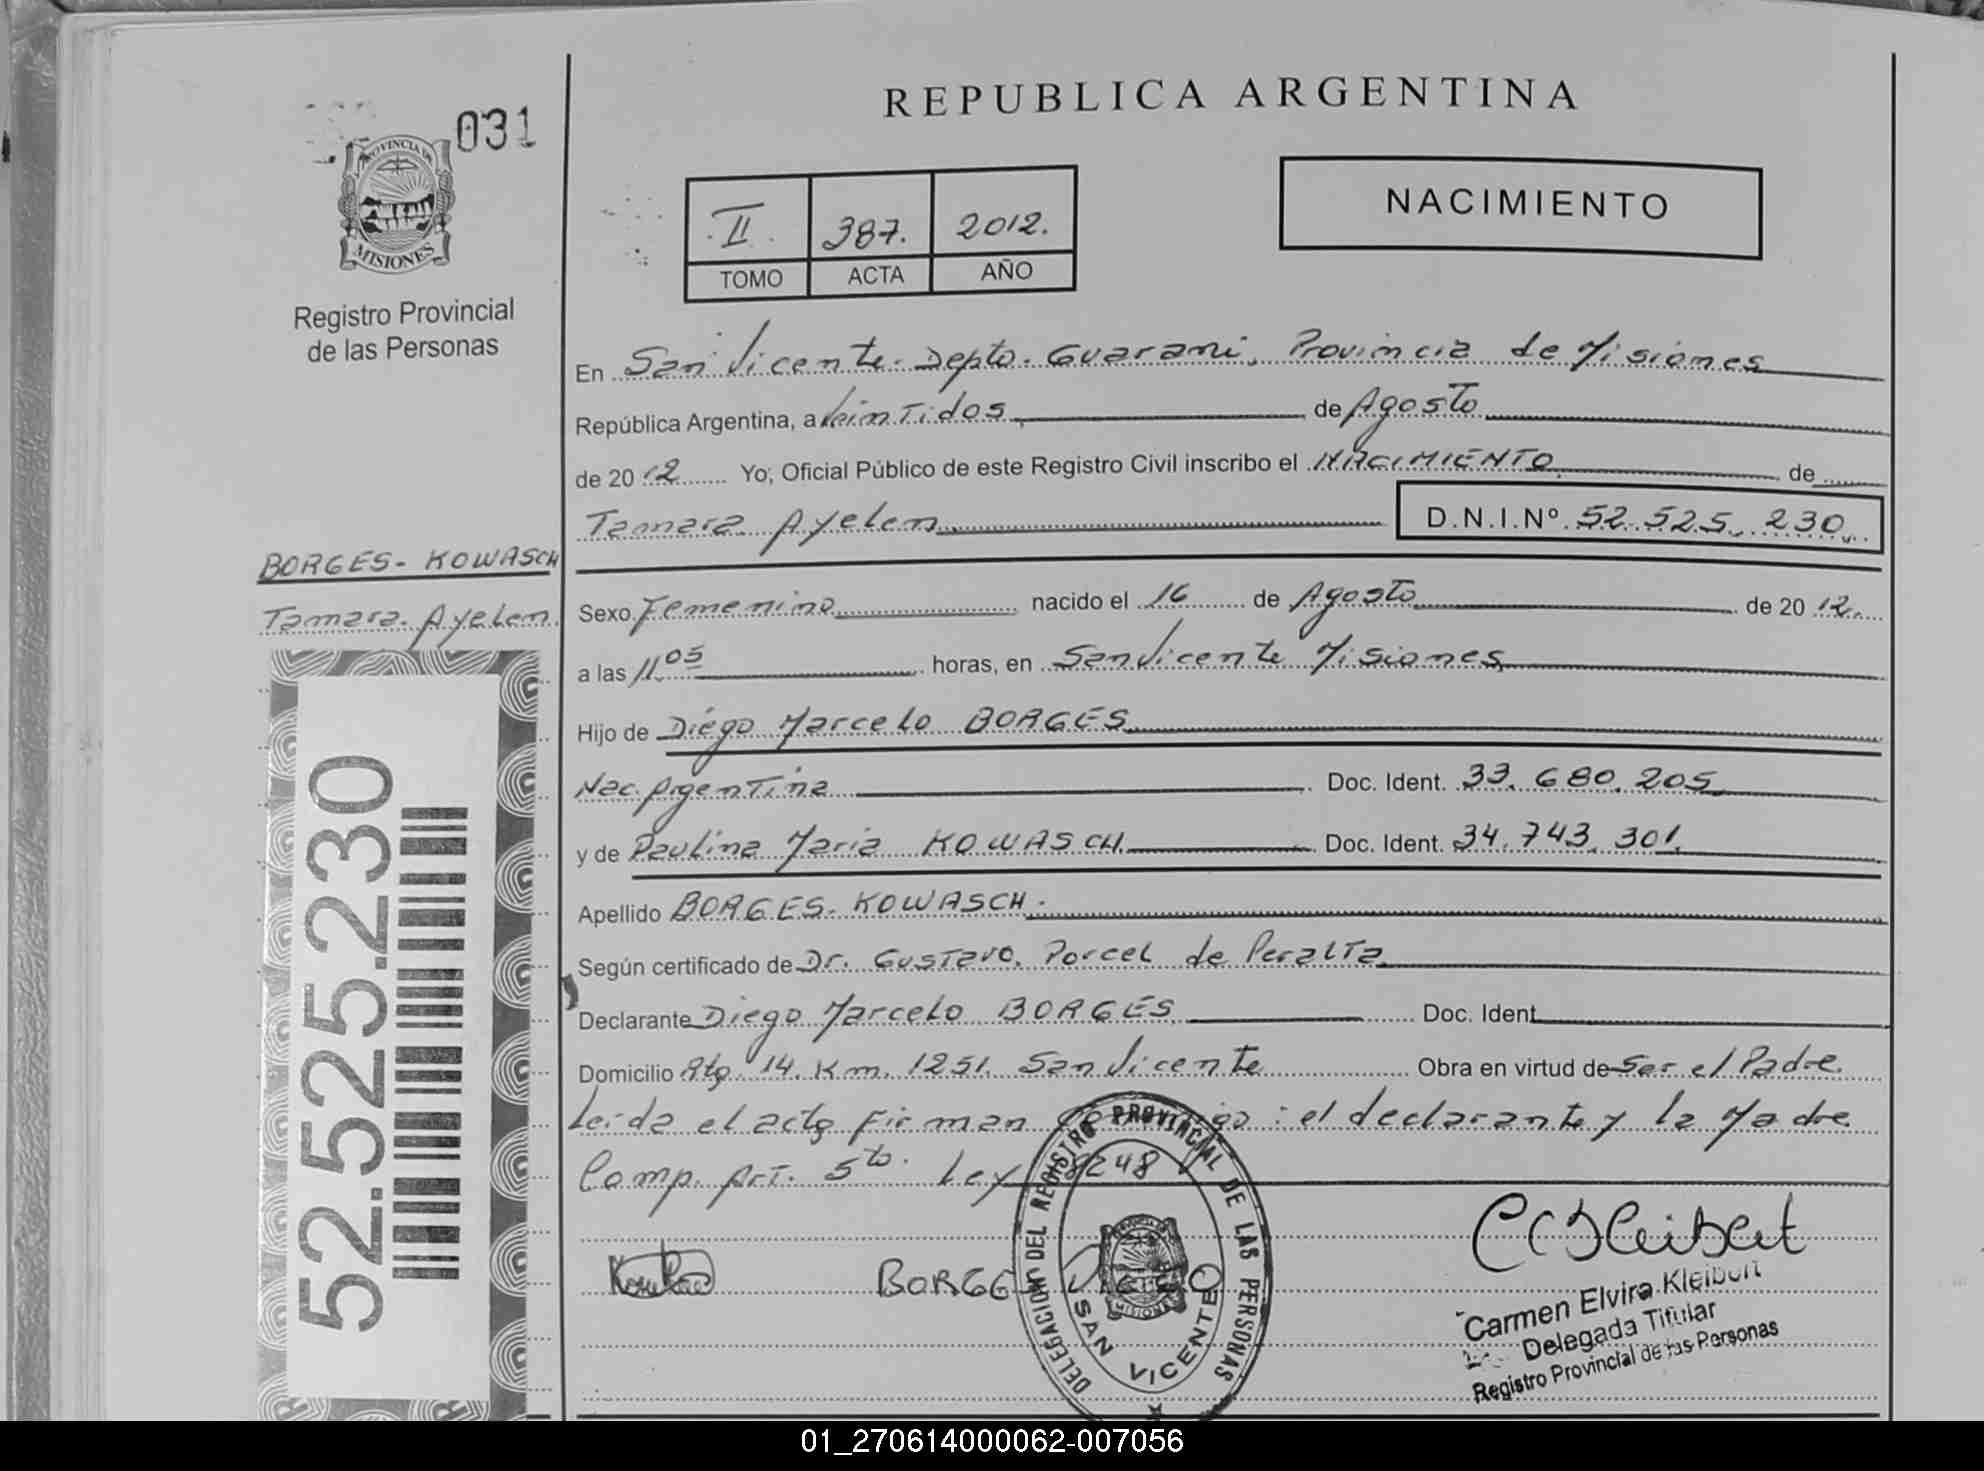 REPUBLICA ARGENTINA
031
PROVINCIA DE
MISIONES
Registro Provincial
de las Personas
II 387. 2012.
TOMO ACTA AÑO
NACIMIENTO
En San Vicente. Depto. Guarani, Provincia de Misiones
República Argentina, a Veintidos de Agosto
de 2012 Yo, Oficial Público de este Registro Civil inscribo el NACIMIENTO de
Tamara Ayelem D.N.I.Nº 52.525.230
BORGES - KOWASCH
Tamara Ayelem
52.525.230
Sexo Femenino nacido el 16 de Agosto de 2012.
a las 11.05 horas, en San Vicente Misiones
Hijo de Diego Marcelo BORGES
Nac. Argentina Doc. Ident. 33.680.205
y de Paulina Maria KOWASCH Doc. Ident. 34.743.301.
Apellido BORGES - KOWASCH.
Según certificado de Dr. Gustavo Porcel de Peralta
Declarante Diego Marcelo BORGES Doc. Ident
Domicilio Rta. 14. Km. 1251. San Vicente Obra en virtud de Ser el Padre
Leida el acta Firman : el declarante y la Madre
Comp. Art. 5to. Ley 18248
BORGES DIEGO
DELEGACION DEL REGISTRO PROVINCIAL DE LAS PERSONAS
PROVINCIA DE
MISIONES
SAN VICENTE
Carmen Elvira Kleibert
Delegada Titular
Registro Provincial de las Personas
01_270614000062-007056